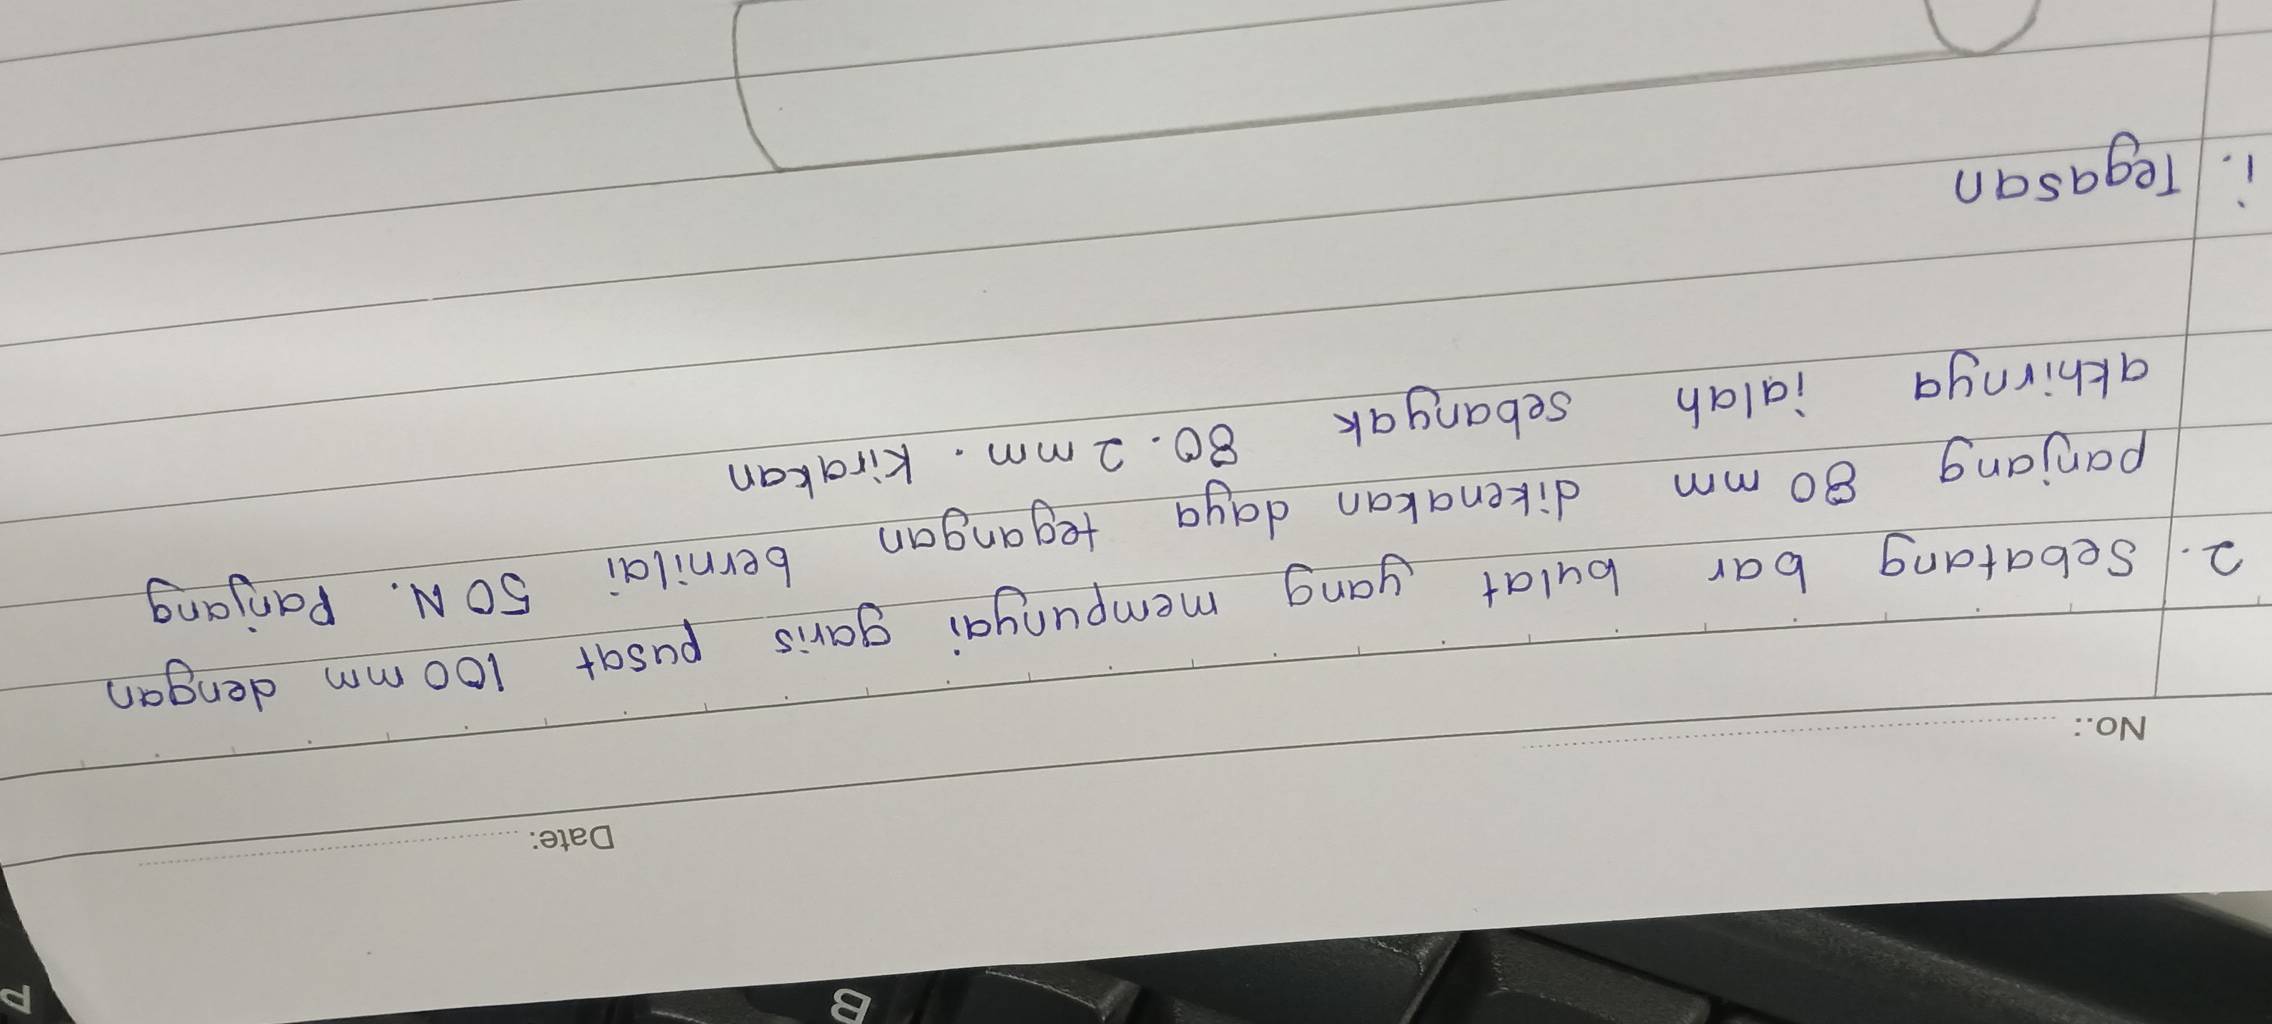 Date:
No.:
2. Sebatang bar bulat yang mempunyai garis pusat 100 mm dengan
panjang 80 mm dikenakan daya tegangan bernilai 50 N. Panjang
akhirnya ialah sebanyak 80.2 mm. Kirakan
i. Tegasan
B
P